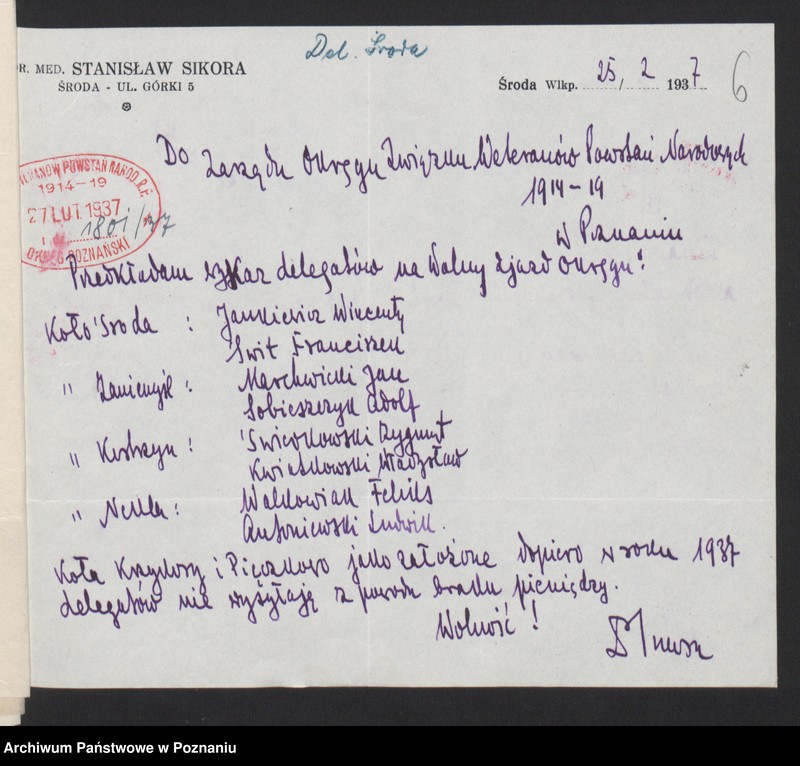 Del. Środa
DR. MED. STANISŁAW SIKORA
ŚRODA - UL. GÓRKI 5
Środa Wlkp. 25, 2 1937
6
Do Zarządu Okręgu Związku Weteranów Powstań Narodowych
1914-19
w Poznaniu
POWSTAŃ NAROD. R.P.
1914-19
27 LUT. 1937
1801/37
OKRĘG POZNAŃSKI
Przedkładam wykaz delegatów na Walny Zjazd Okręgu:
Koło Środa : Jankiewicz Wincenty
Świt Franciszek
" Zaniemyśl : Marchwicki Jan
Sobieszczyk Adolf
" Kostrzyn : Świerkowski Zygmunt
Kwiatkowski Władysław
" Nekla : Walkowiak Feliks
Antoniewski Ludwik.
Koła Krzykosy i Pięczkowo jako założone dopiero w roku 1937
delegatów nie wysyłają z powodu braku pieniędzy.
Wolność !